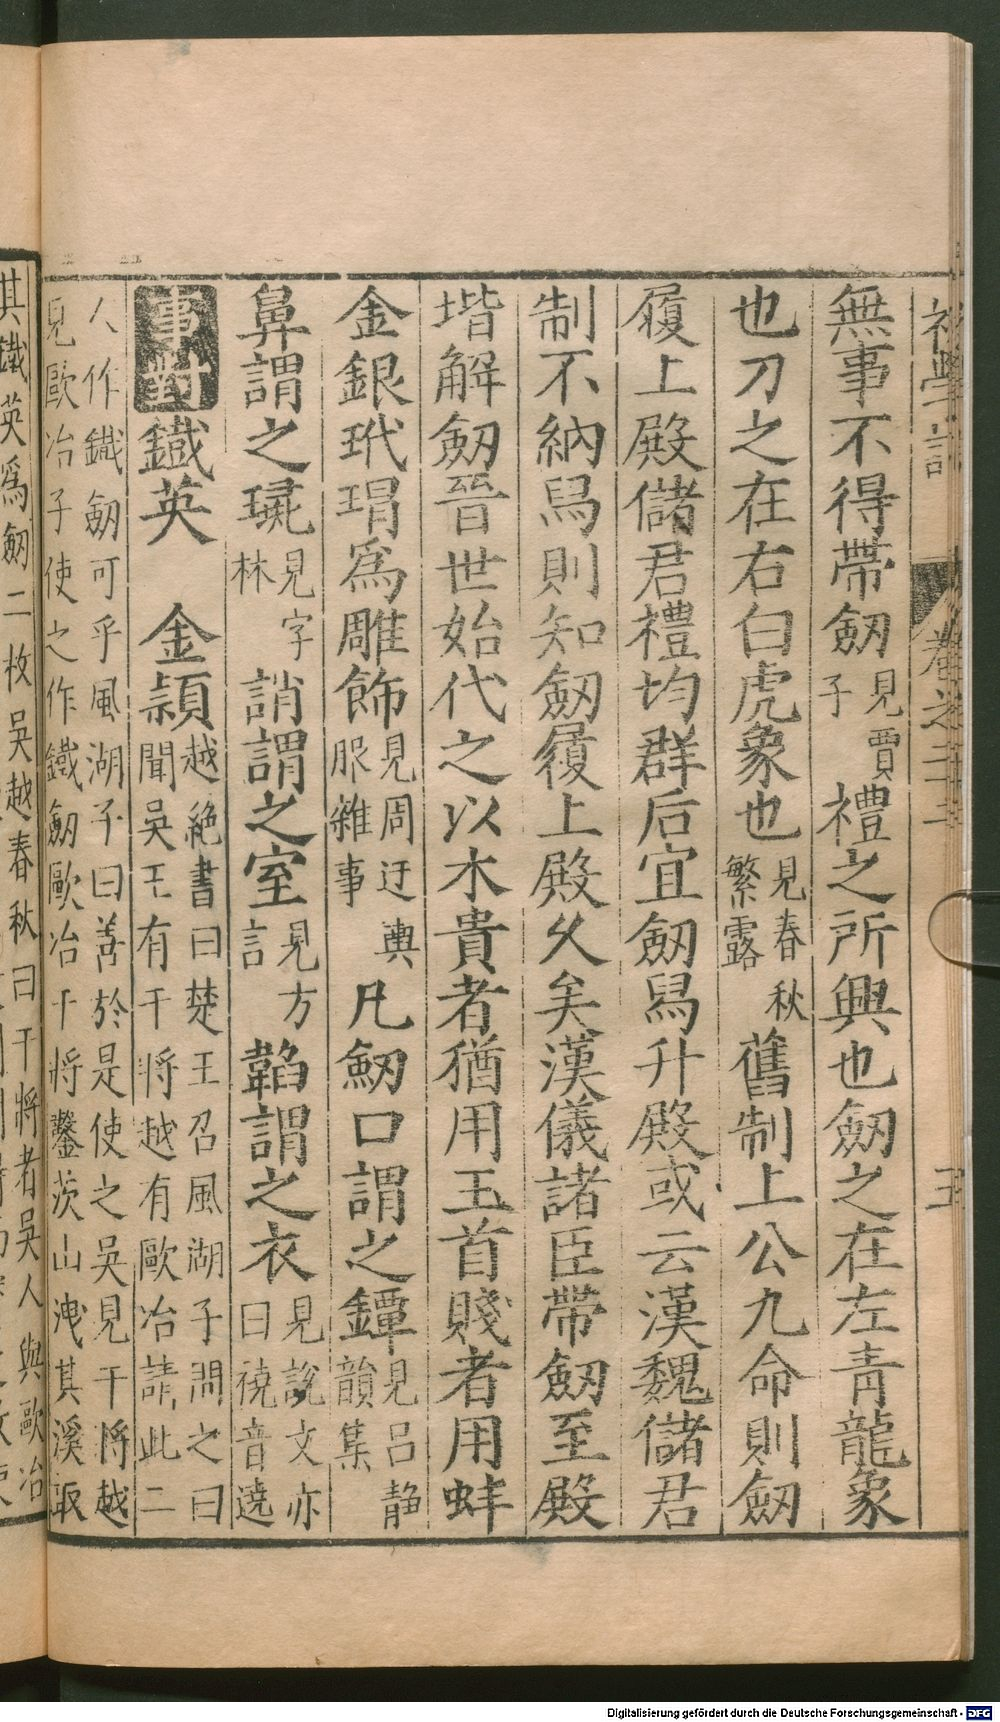 初學記 卷之二十二 五
無事不得帶劒見賈子禮之所興也劒之在左青龍象
也刀之在右白虎象也見春秋繁露舊制上公九命則劒
履上殿儲君禮均群后宜劒舄升殿或云漢魏儲君
制不納舄則知劒履上殿乆矣漢儀諸臣帶劒至殿
堦解劒晉世始代之以木貴者猶用玉首賤者用蚌
金銀玳瑁爲雕飾見周迂輿服雜事凡劒口謂之鐔見吕静韻集
鼻謂之璏見字林誚謂之室見方言韜謂之衣見說文亦曰襓音遶
事對鐵英 金頴越絶書曰楚王召風湖子問之曰聞吳王有干將越有歐冶請此二
人作鐵劒可乎風湖子曰善於是使之吳見干將越見歐冶子使之作鐵劒歐冶干將鑿茨山洩其溪取
其鐵英爲劒二枚吳越春秋曰干將者吳人與歐冶
Digitalisierung gefördert durch die Deutsche Forschungsgemeinschaft - DFG